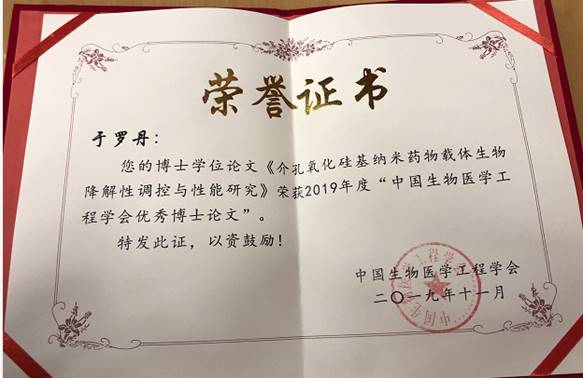 荣誉证书
于罗丹：
您的博士学位论文《介孔氧化硅基纳米药物载体生物
降解性调控与性能研究》荣获2019年度“中国生物医学工
程学会优秀博士论文”。
特发此证，以资鼓励！
中国生物医学工程学会
二〇一九年十一月
中国生物医学工程学会